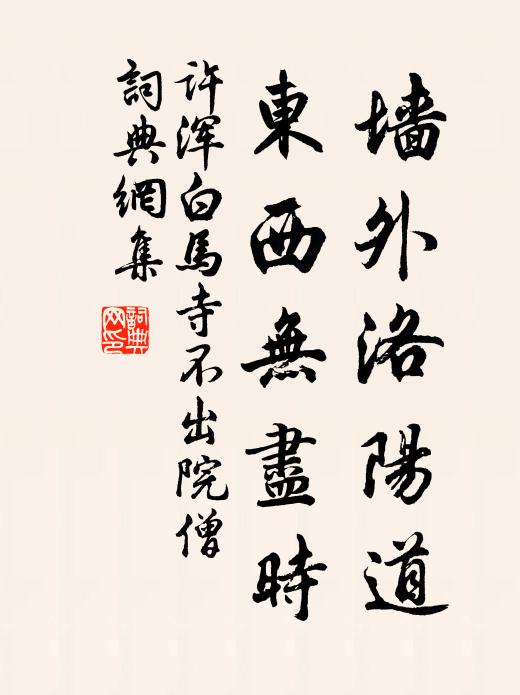 墙外洛陽道
東西無盡時
許渾白馬寺不出院僧
詞典網集
詞典网印